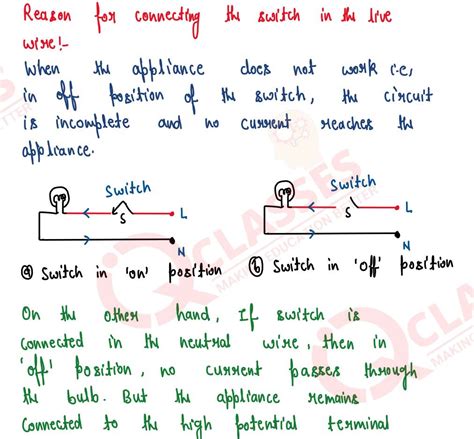 Reason for connecting the switch in the live
wire!-
When the appliance does not work i.e,
in off position of the switch, the circuit
is incomplete and no current reaches the
appliance.
Switch
S
L
N
Switch
S
L
N
ⓐ Switch in 'on' position
ⓑ Switch in 'off' position
On the other hand, If switch is
connected in the neutral wire, then in
'off' position, no current passes through
the bulb. But the appliance remains
connected to the high potential terminal
CLASSES
MAKING EDUCATION BETTER
CLASSES
MAKING